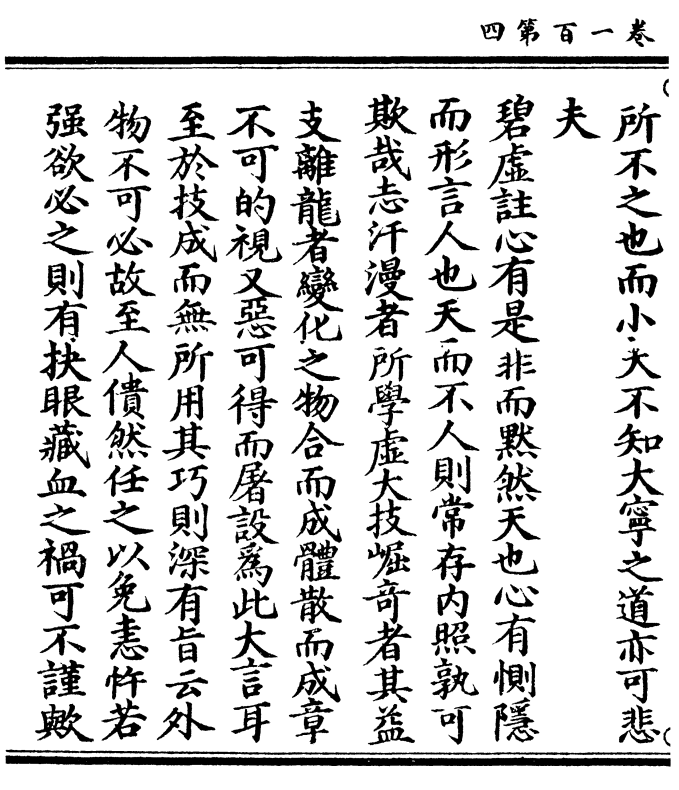 卷一百第四
所不之也而小夫不知大寧之道亦可悲
夫
碧虛註心有是非而默然天也心有惻隱
而形言人也天而不人則常存内照孰可
欺哉志汗漫者所學虛大技崛奇者其益
支離龍者變化之物合而成體散而成章
不可的視又惡可得而屠設爲此大言耳
至於技成而無所用其巧則深有旨云外
物不可必故至人僓然任之以免恚忤若
强欲必之則有抉眼藏血之禍可不謹歟